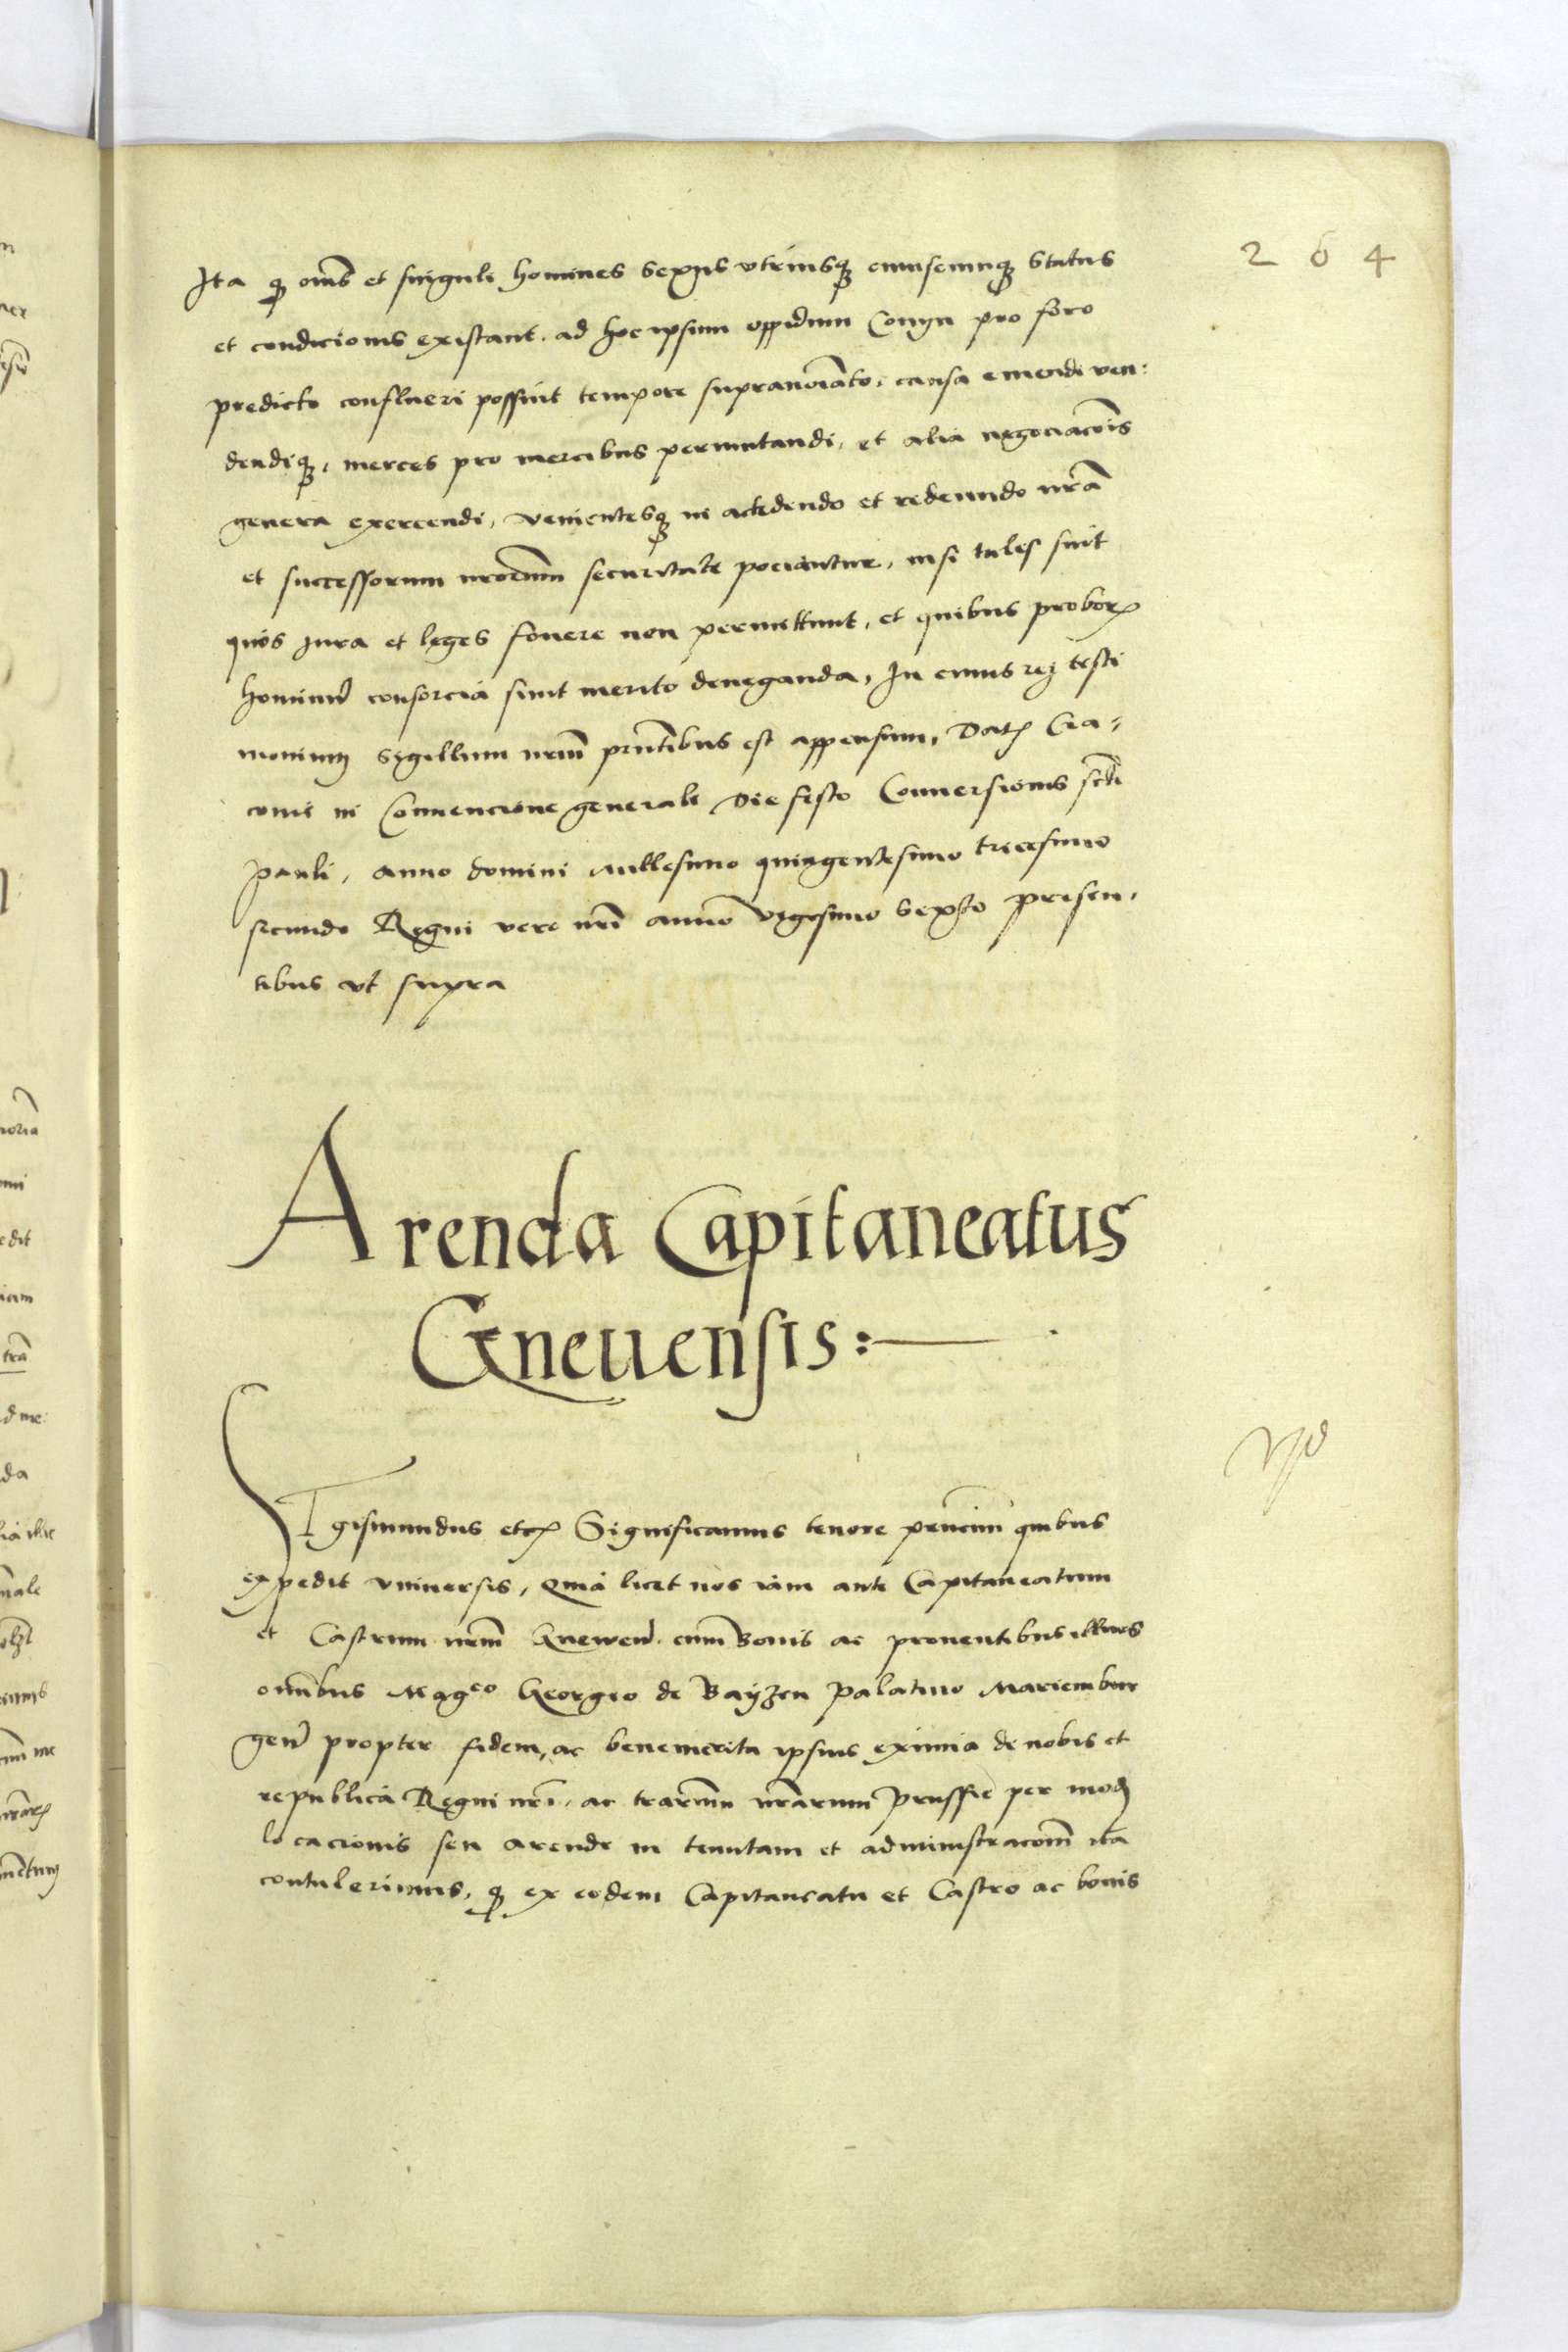 264
Ita qꝫ om̄s et singuli homines sexus vtriusqꝫ cuiuscunqꝫ status
et condicionis existant. ad hoc ipsum oppidum Conyn pro foro
predicto conflueri possint tempore supranoīato, causa emendi ven:
dendiqꝫ, merces pro mercibus permutandi, et alia negociacōis
genera exercendi, venientesqꝫ in accedendo et redeundo nr̄a
et successorum nrorum securitate pociantur, nisi tales sint
quos iura et leges fouere non permittunt, et quibus proborꝝ
hominū consorcia sunt merito deneganda, In cuius rej testi
monium sigillum nrm̄ prn̄tibus est appensum, Datꝫ Cra-
couie in Conuencione generali die festo Conuersionis scti
pauli, anno domini millesimo quingentesimo tricesimo
secundo Regni vero nrī anno vigesimo sexto presen-
tibus vt supra
Arenda Capitaneatus
Gneuensis:—
SIgismundus etcꝫ Significamus tenore prn̄cium quibus
expedit vniuersis, Quia licet nos iam ante Capitaneatum
et Castrum nrm̄ Gnewen̄. cum bonis ac prouentibus illius
omībus Magco Georgio de Bayzen palatino Mariembur
gen̄ propter fidem, ac benemerita ipsius eximia de nobis et
republica Regni nrī, ac trarum nrarum prussie per modꝫ
locacionis seu arende in tenutam et administracōm ita
contulerimus, qꝫ ex eodem Capitaneatu et Castro ac bonis